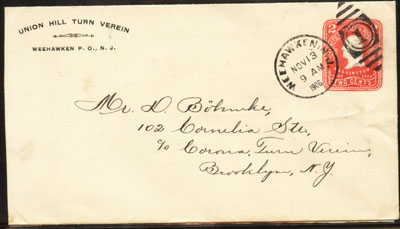 UNION HILL TURN VEREIN
WEEHAWKEN P. O., N. J.
WEEHAWKEN, N.J.
NOV 13
9 AM
1906
2
TWO CENTS
Mr. D. Böhmke,
102 Cornelia Str.,
c/o Corona Turn Verein,
Brooklyn, N.Y.